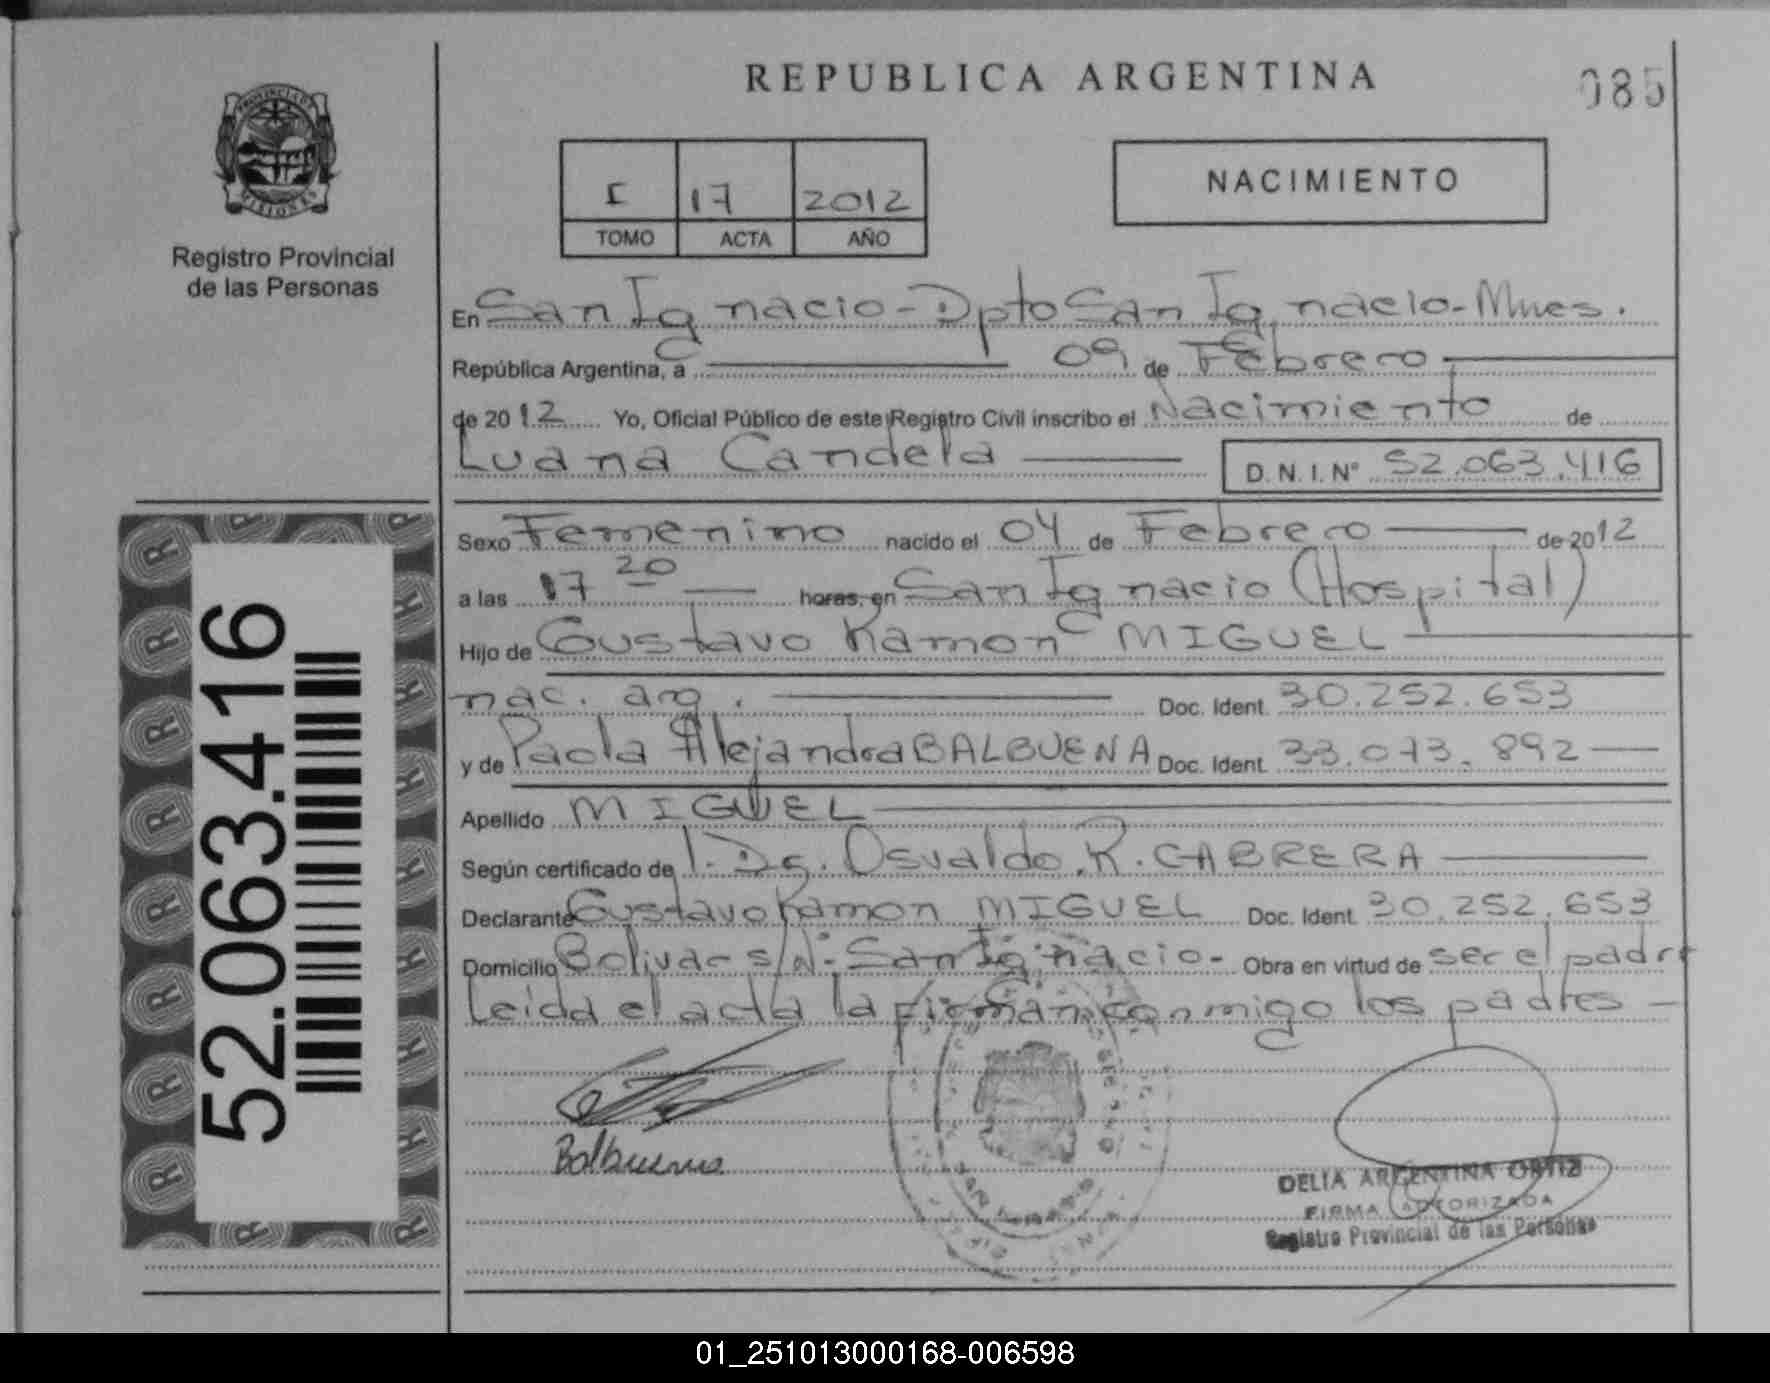 REPUBLICA ARGENTINA
085
PROVINCIA DE MISIONES
Registro Provincial
de las Personas
I 17 2012
TOMO ACTA AÑO
NACIMIENTO
En San Ignacio - Dpto San Ignacio - Mnes.
República Argentina, a 09 de Febrero
de 2012 Yo, Oficial Público de este Registro Civil inscribo el Nacimiento de
Luana Candela D. N. I. Nº 52.063.416
Sexo Femenino nacido el 04 de Febrero de 2012
a las 17 20 horas, en San Ignacio (Hospital)
Hijo de Gustavo Ramon MIGUEL
nac. arg. Doc. Ident. 30.252.653
y de Paola Alejandra BALBUENA Doc. Ident. 33.073.892
Apellido MIGUEL
Según certificado de Dr. Osvaldo R. CABRERA
Declarante Gustavo Ramon MIGUEL Doc. Ident. 30.252.653
Domicilio Bolivar s/Nº - San Ignacio - Obra en virtud de ser el padre
Leida el acta la firman conmigo los padres
Balbuena
DELIA ARGENTINA ORTIZ
FIRMA AUTORIZADA
Registro Provincial de las Personas
52.063.416
01_251013000168-006598